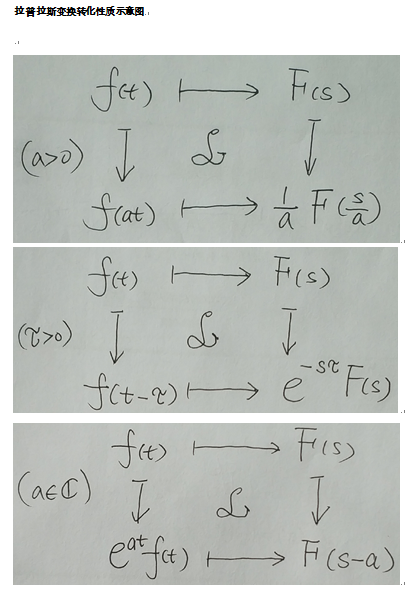 拉普拉斯变换转化性质示意图
f(t) ↦ F(s)
(a>0) ↓ ℒ ↓
f(at) ↦ 1/a F(s/a)
f(t) ↦ F(s)
(τ>0) ↓ ℒ ↓
f(t-τ) ↦ e^{-sτ} F(s)
f(t) ↦ F(s)
(a∈ℂ) ↓ ℒ ↓
e^{at} f(t) ↦ F(s-a)